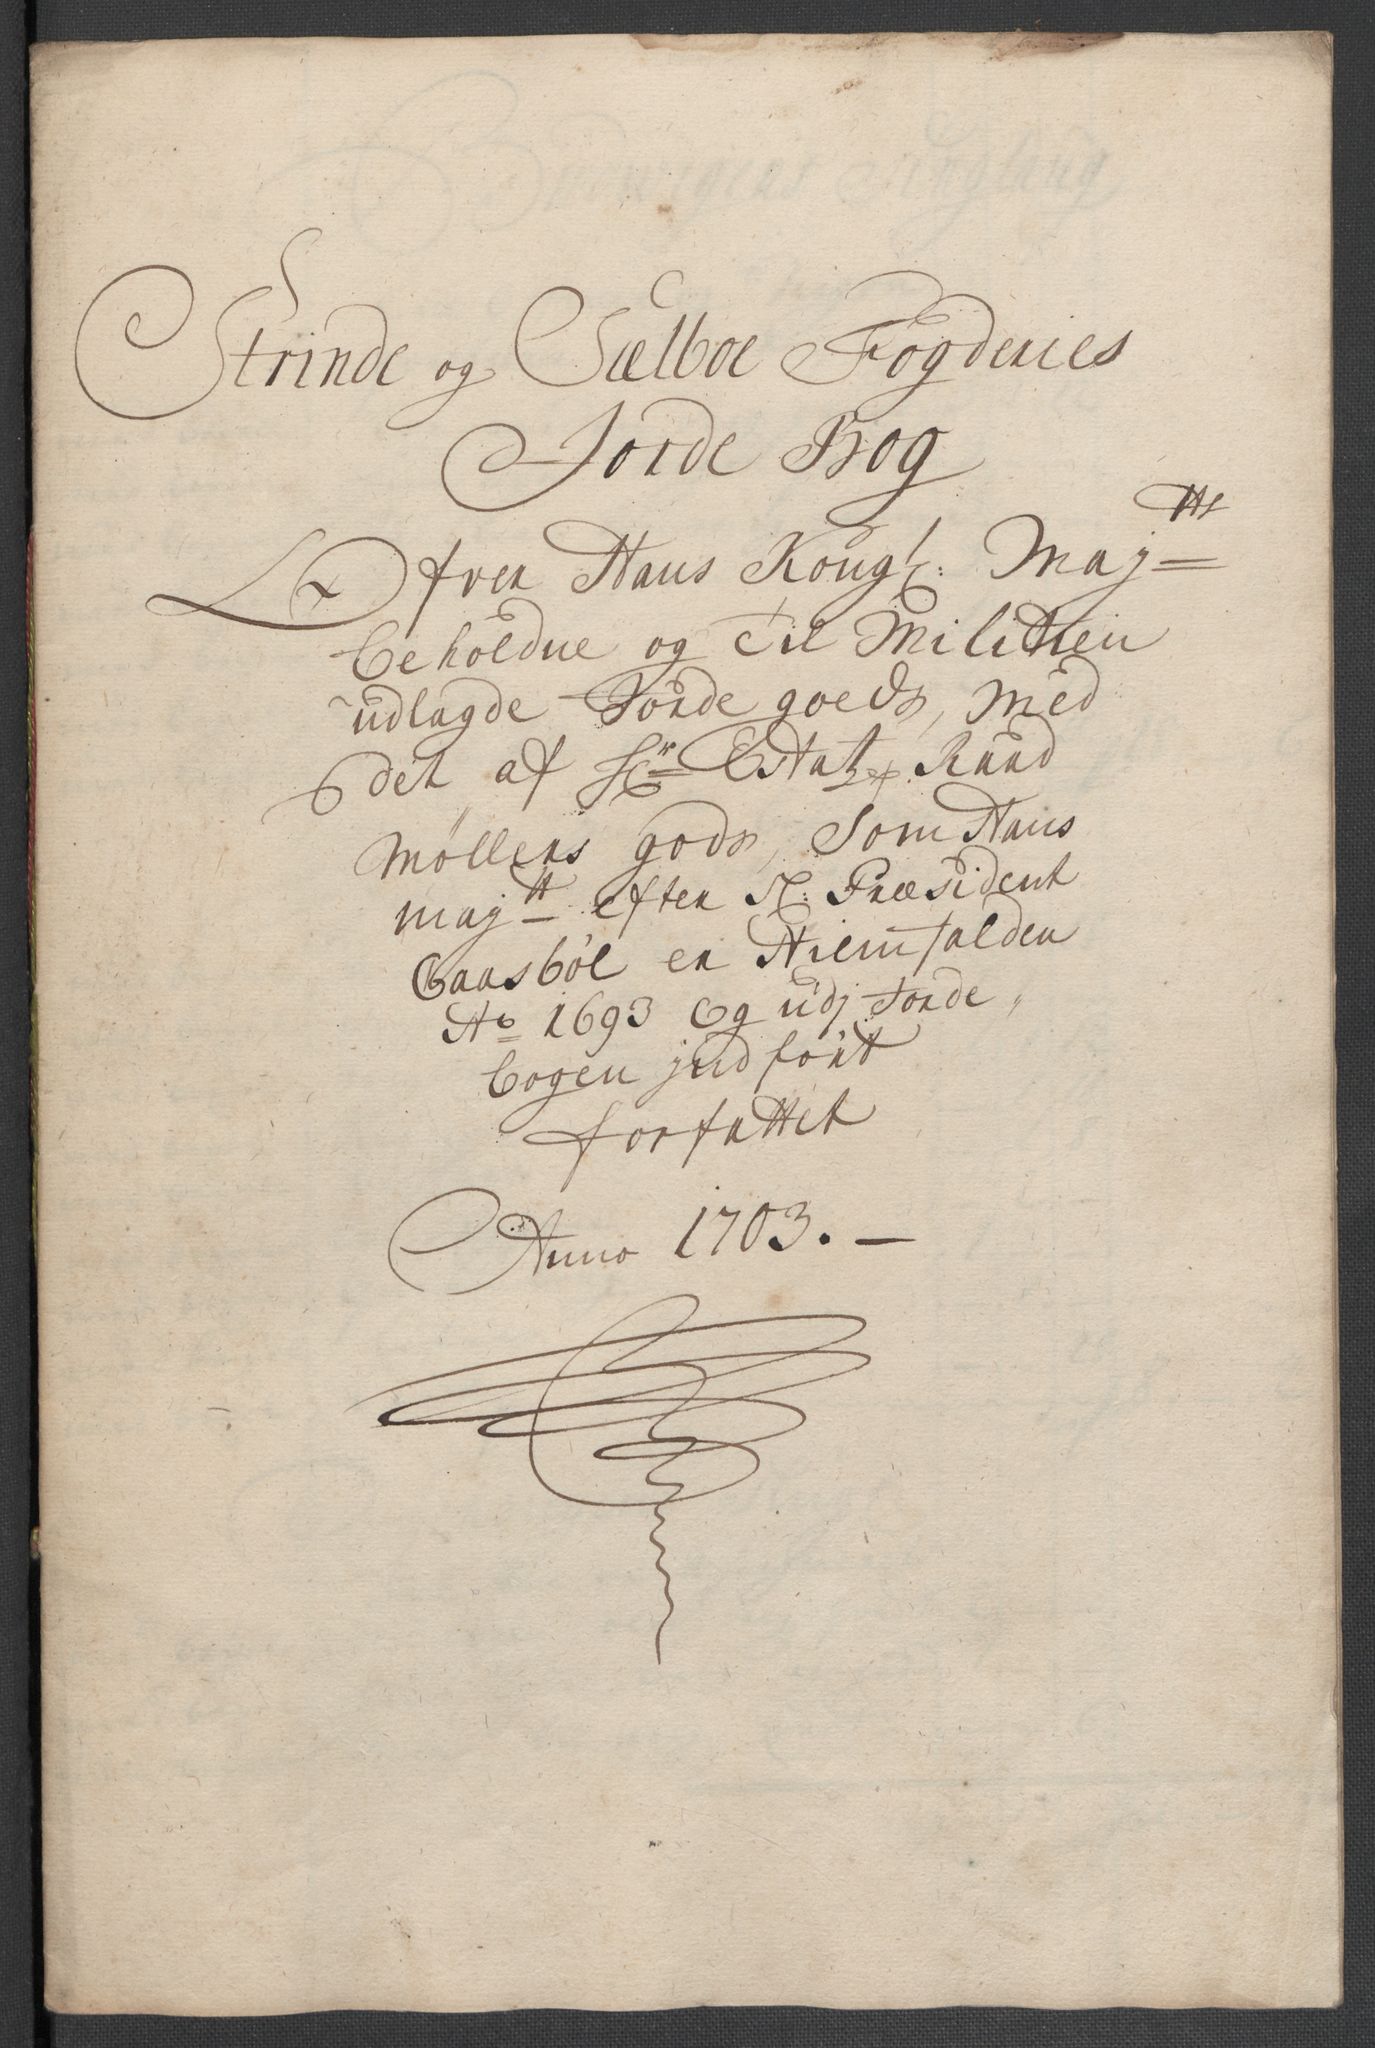 Strinde og Sælboe Fogderies
Jorde Bog
Ofver Hans Kongl: Maj:tts
beholdne og Til Militien
udlagde Jorde goeds, Med
det af Hr: Etatz R: Raad
Møllers gods, Som Hans
maj:tt efter Sl: Præsident
Baasböl er Hiemfalden
Ao 1693 Og udj Jorde,
bogen jndført
forfattet
Anno 1703. —